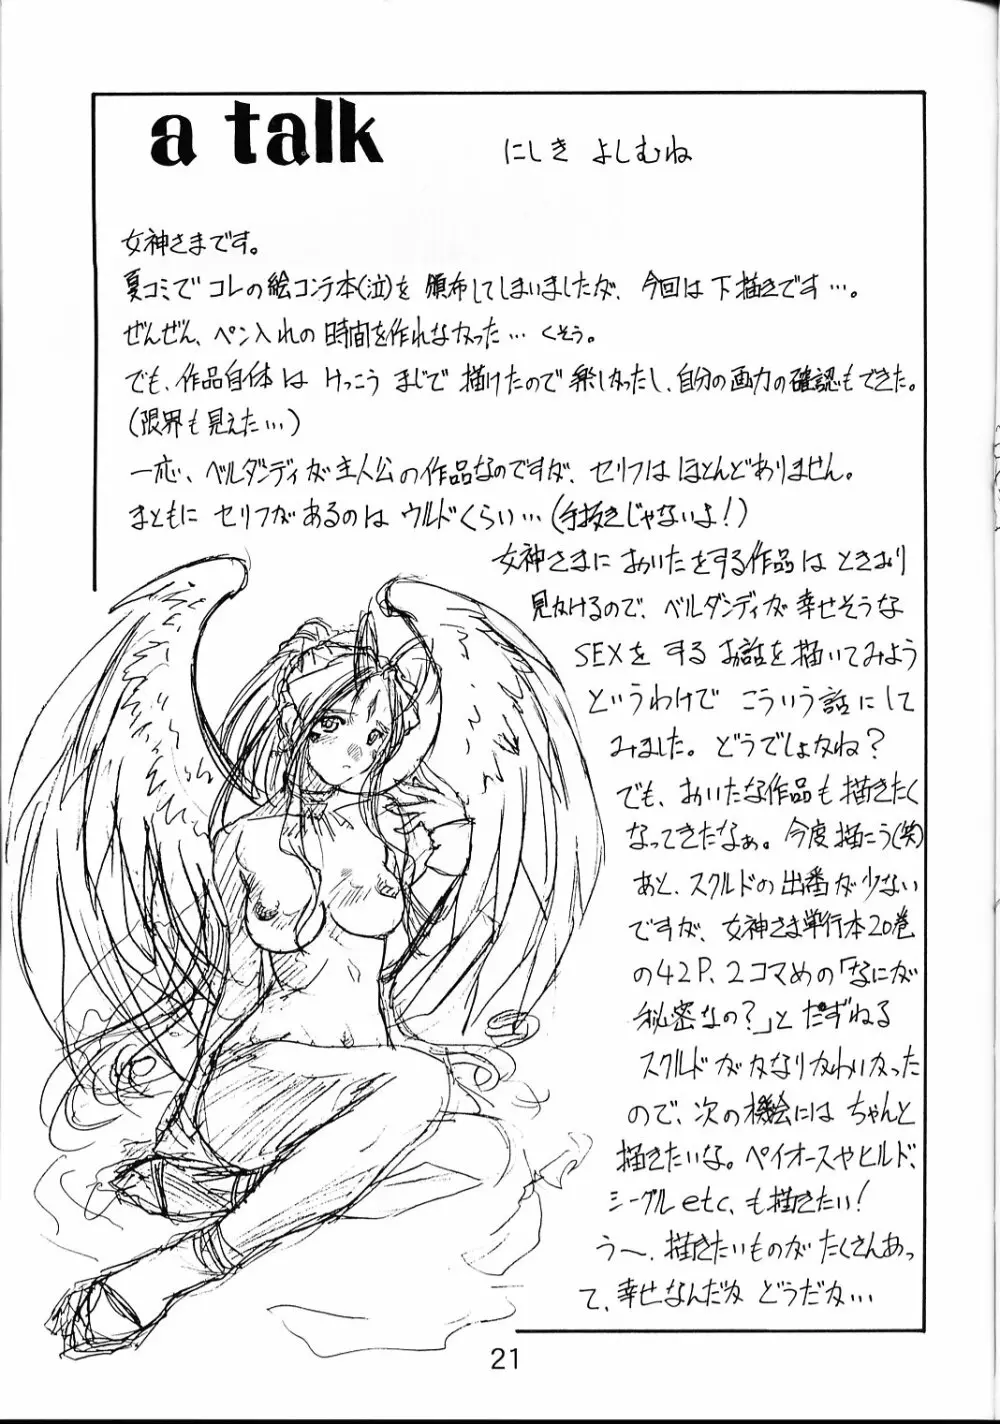 a talk
にしき よしむね
女神さまです。
夏コミで コレの絵コンテ本(泣)を 頒布してしまいましたが、今回は下描きです…。
ぜんぜん、ペン入れの時間を作れなかった… くそう。
でも、作品自体は けっこう まじで 描けたので 楽しかったし、自分の画力の確認もできた。
(限界も見えた…)
一応、ベルダンディが主人公の作品なのですが、セリフは ほとんどありません。
まともに セリフがあるのは ウルドくらい…(手抜きじゃないよ!)
女神さまに おいたをする作品は ときおり
見かけるので、ベルダンディが幸せそうな
SEXを する お話を描いてみよう
というわけで こういう話にして
みました。どうでしょかね?
でも、おいたな作品も描きたく
なってきたなぁ。今度描こう(笑)
あと、スクルドの出番が少ない
ですが、女神さま単行本20巻
の42P.2コマめの「なにが
秘密なの?」と たずねる
スクルドが かなりかわいかった
ので、次の機絵には ちゃんと
描きたいな。ペイオースやヒルド、
シーグルetc.も描きたい!
う〜、描きたいものが たくさんあっ
て、幸せなんだか どうだか…
21